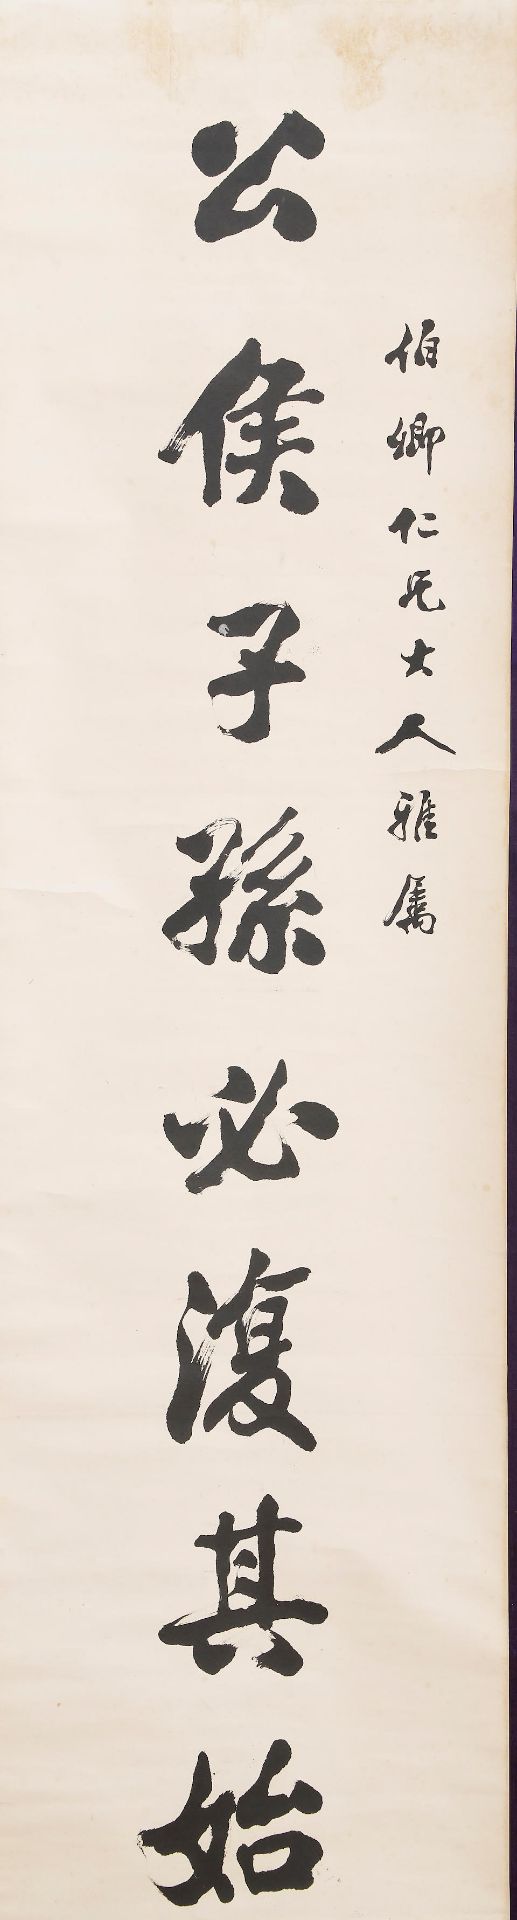 伯卿仁兄大人雅属
公侯子孫必復其始